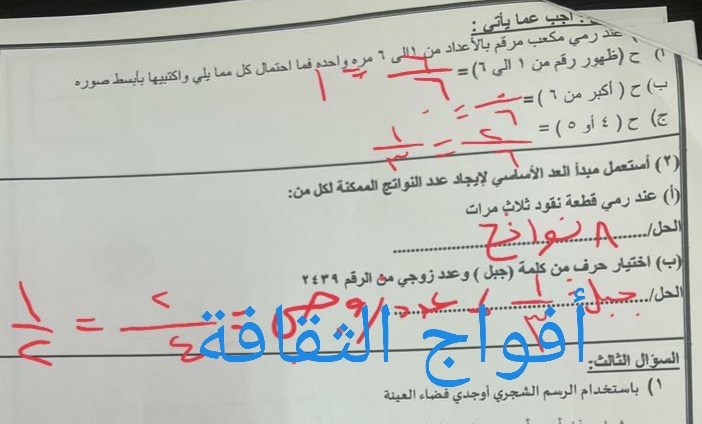 : أجب عما يأتي :
١) عند رمي مكعب مرقم بالأعداد من ١ الى ٦ مره واحده فما احتمال كل مما يلي واكتبيها بأبسط صوره
أ) ح (ظهور رقم من ١ الى ٦) = ٦/٦ = ١
ب) ح ( أكبر من ٦ ) = ٠/٦ = ٠
ج) ح ( ٤ أو ٥ ) = ٢/٦ = ١/٣
(٢) أستعمل مبدأ العد الأساسي لإيجاد عدد النواتج الممكنة لكل من:
(أ) عند رمي قطعة نقود ثلاث مرات
الحل/ ٨ نواتج
(ب) اختيار حرف من كلمة (جبل ) وعدد زوجي من الرقم ٢٤٣٩
الحل/ جبل: ١/٣ ، عدد زوجي = ٢/٤ = ١/٢
أفواج الثقافة
السؤال الثالث:
١) باستخدام الرسم الشجري أوجدي فضاء العينة